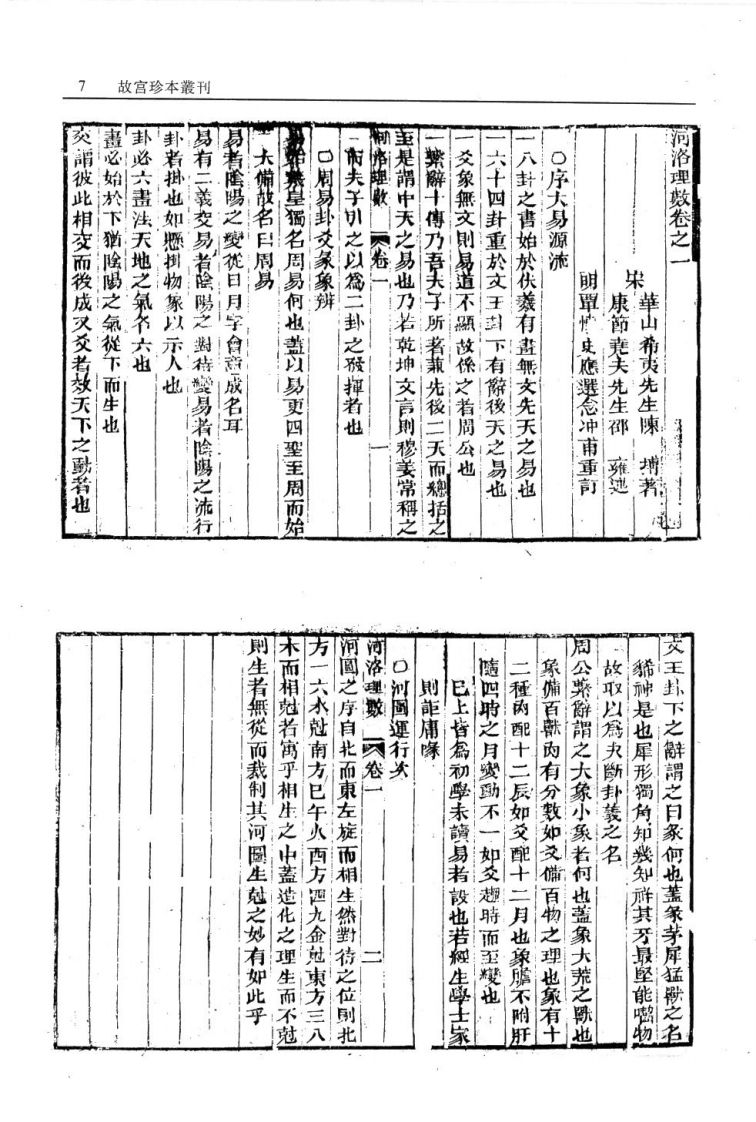 7 故宫珍本叢刊
河洛理數卷之一
宋 華山希夷先生陳 摶著
康節堯夫先生邵 雍述
明 史應選念冲甫重訂
○序大易源流
八卦之書始於伏羲有畫無文先天之易也
六十四卦重於文王卦下有辭後天之易也
爻象無文則易道不顯故係之者周公也
繫辭十傳乃吾夫子所著兼先後二天而總括之
至是謂中天之易也乃若乾坤文言則穆姜常稱之
河洛理數 卷一 一
而夫子引之以爲二卦之發揮者也
○周易卦爻彖象辨
易始羲皇獨名周易何也蓋以易更四聖至周而始
大備故名曰周易
易者陰陽之變從日月字會意成名耳
易有二義交易者陰陽之對待變易者陰陽之流行
卦者掛也如懸掛物象以示人也
卦必六畫法天地之氣各六也
畫必始於下猶陰陽之氣從下而生也
爻謂彼此相交而後成又爻者效天下之動者也
文王卦下之辭謂之曰彖何也蓋彖茅犀猛獸之名
豨神是也犀形獨角知幾知祥其牙最堅能囓物
故取以爲決斷卦義之名
周公繫辭謂之大象小象者何也蓋象大荒之獸也
象備百獸肉有分數如爻備百物之理也象有十
二種肉配十二辰如爻配十二月也象膽不附肝
隨四時之月變動不一如爻趨時而至變也
已上皆爲初學未讀易者設也若經生學士家
則詎庸喙
○河圖運行次
河圖之序自北而東左旋而相生然對待之位則北
方一六水尅南方巳午火西方四九金尅東方三八
木而相尅者寓乎相生之中蓋造化之理生而不尅
則生者無從而裁制其河圖生尅之妙有如此乎
河洛理數 卷一 二